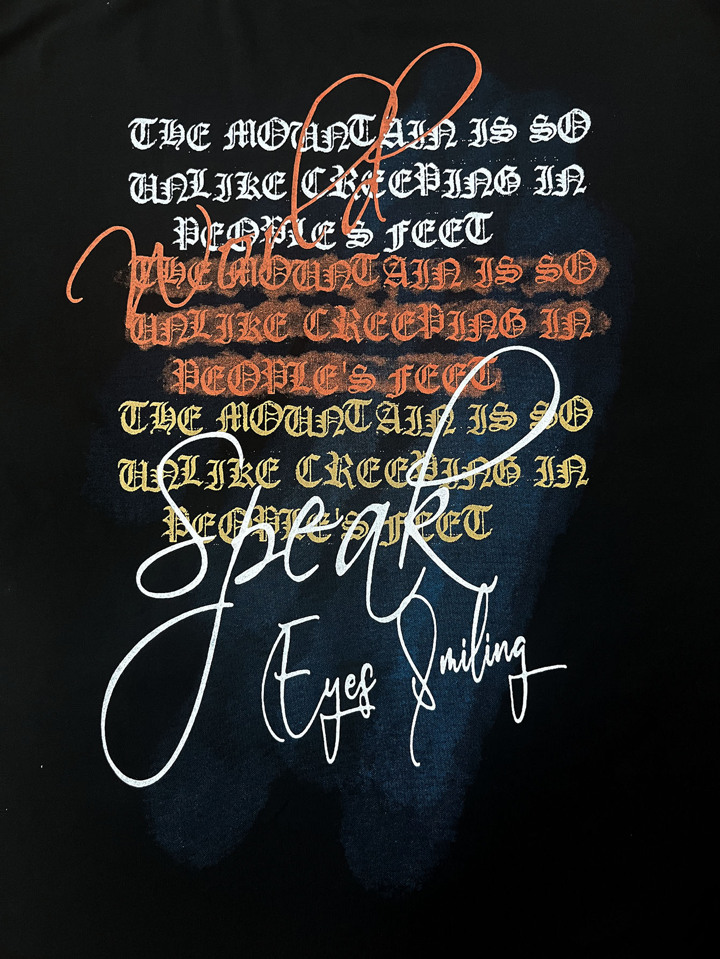 World
THE MOUNTAIN IS SO
UNLIKE CREEPING IN
PEOPLE'S FEET
THE MOUNTAIN IS SO
UNLIKE CREEPING IN
PEOPLE'S FEET
THE MOUNTAIN IS SO
UNLIKE CREEPING IN
PEOPLE'S FEET
Speak
Eyes Smiling